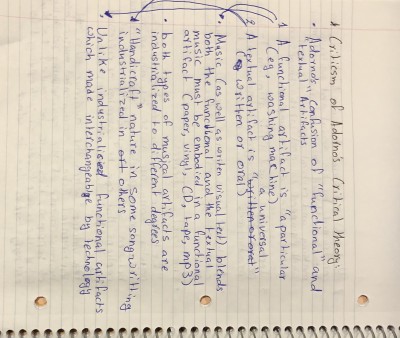 * Criticism of Adorno's Critical theory:
• Adorno's confusion of "functional" and
textual Artifacts
1 A functional artifact is "particular
(eg, washing machine)
2 A textual artifact is a universal
(written or oral)
• Music (as well as written visual text) blends
both the functional and the textual
music must be embodied in a functional
artifact (paper, vinyl, CD, tape, mp3)
• both types of musical artifacts are
industrialized to different degrees
"Handicraft" nature in some songwriting
industrialized in others
• Unlike industrialized functional artifacts
which made interchangeable by technology